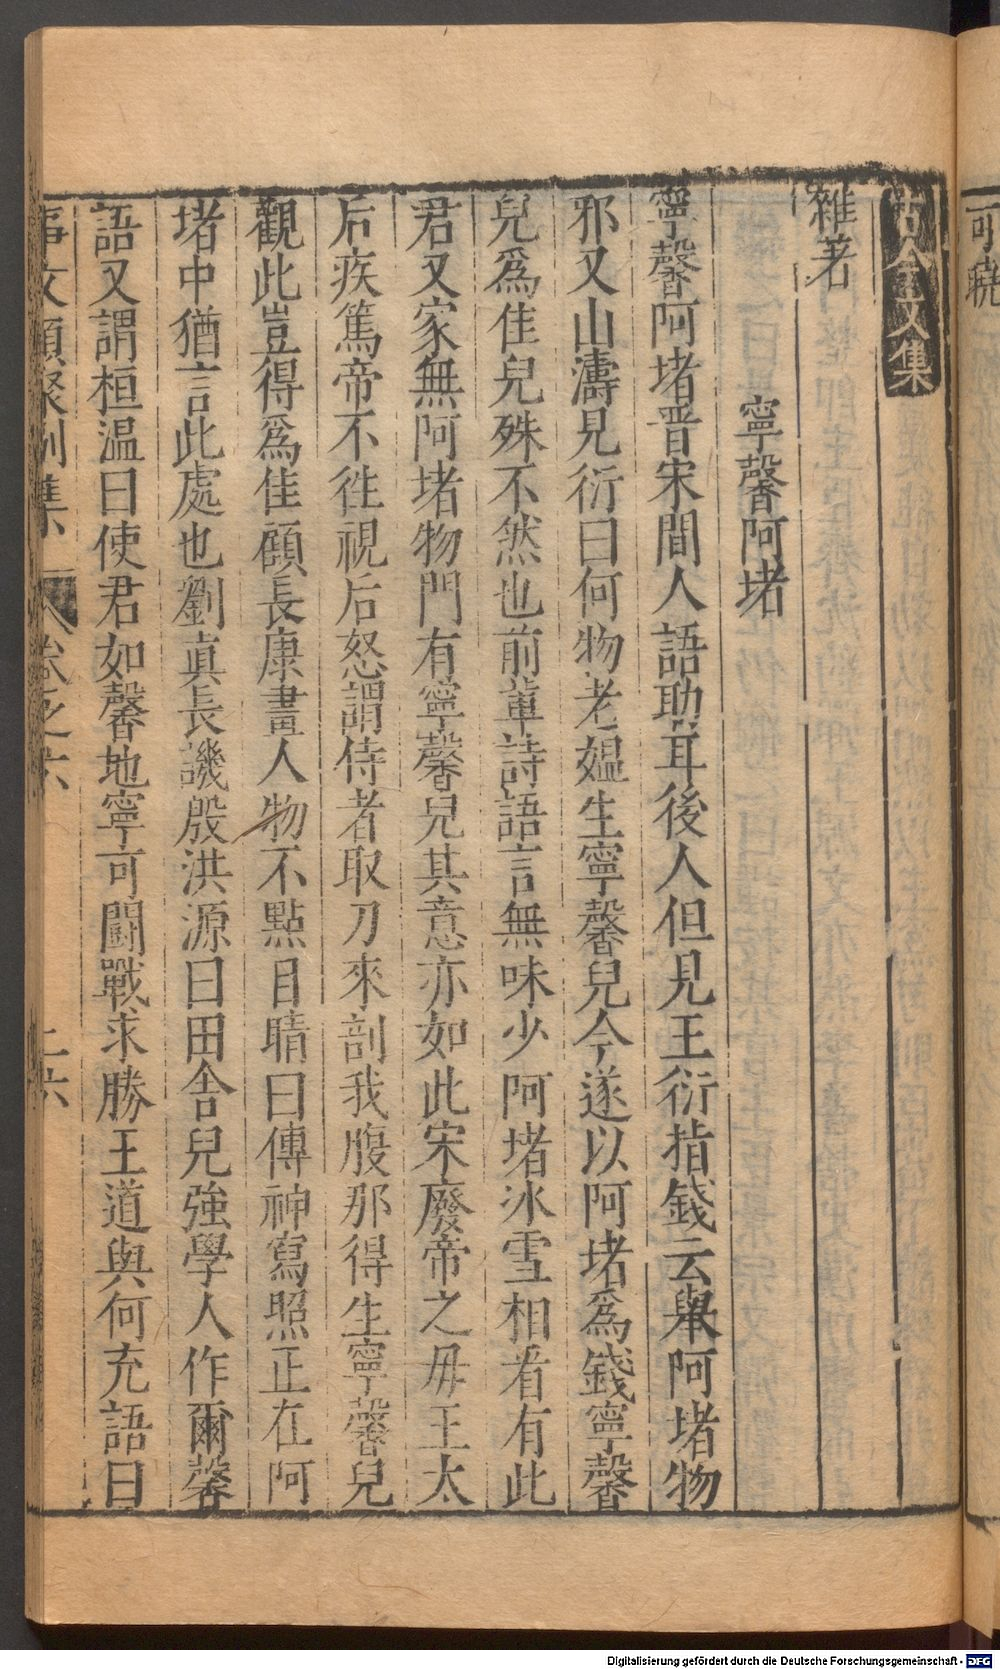 可曉
古今文集
雜著
寧馨阿堵
寧馨阿堵晋宋間人語助耳後人但見王衍指錢云舉阿堵物
邪又山濤見衍曰何物老媼生寧馨兒今遂以阿堵爲錢寧馨
兒爲佳兒殊不然也前輩詩語言無味少阿堵冰雪相看有此
君又家無阿堵物門有寧馨兒其意亦如此宋廢帝之毋王太
后疾篤帝不徃視后怒謂侍者取刀來剖我腹那得生寧馨兒
觀此豈得爲佳顧長康畫人物不點目睛曰傳神寫照正在阿
堵中猶言此處也劉眞長譏殷洪源曰田舍兒強學人作爾馨
語又謂桓温曰使君如馨地寧可鬪戰求勝王道與何充語曰
事文類聚別集 卷之六 二六
Digitalisierung gefördert durch die Deutsche Forschungsgemeinschaft - DFG